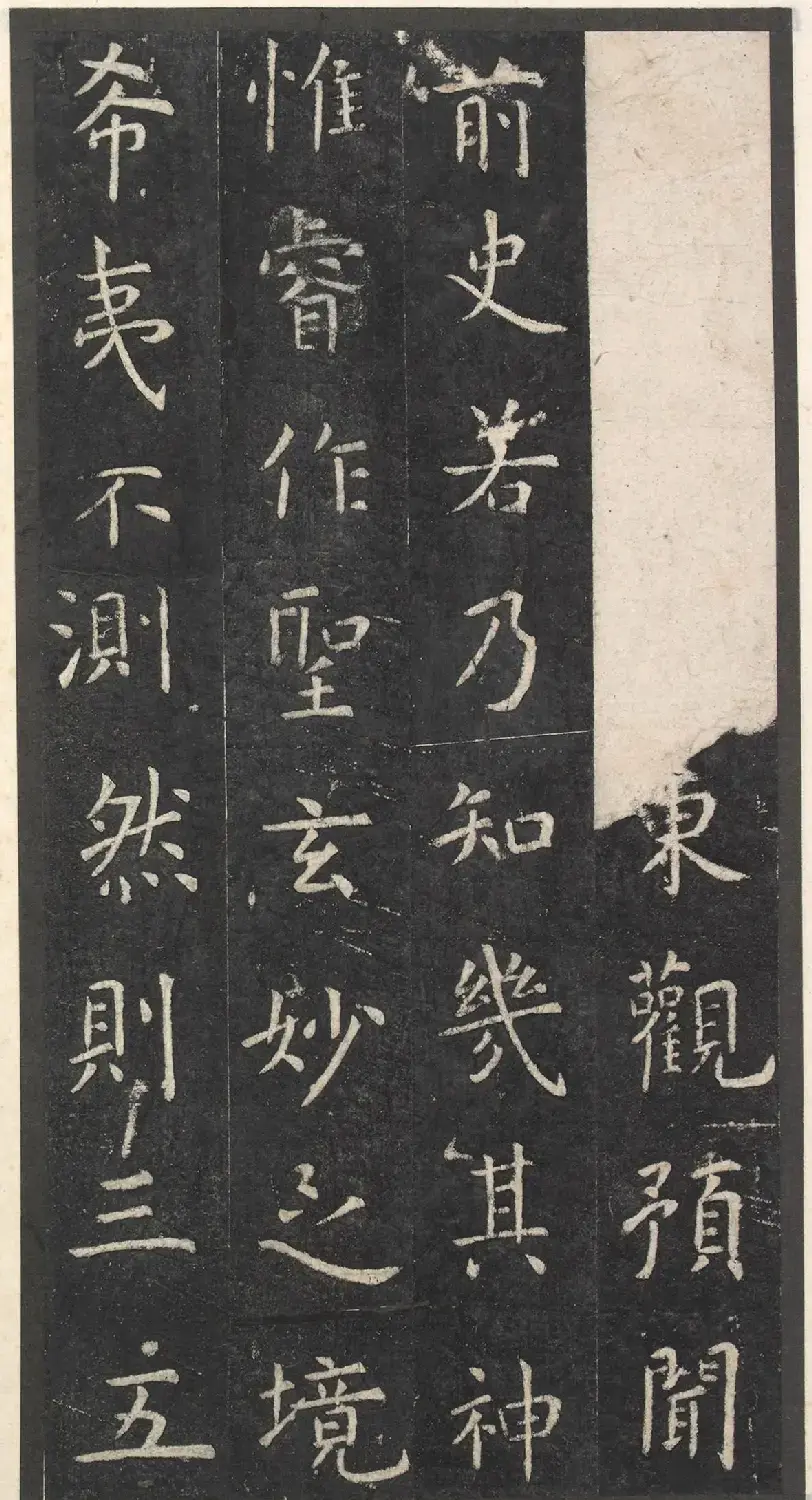 東觀預聞
前史若乃知幾其神
惟睿作聖玄妙之境
希夷不測然則三五